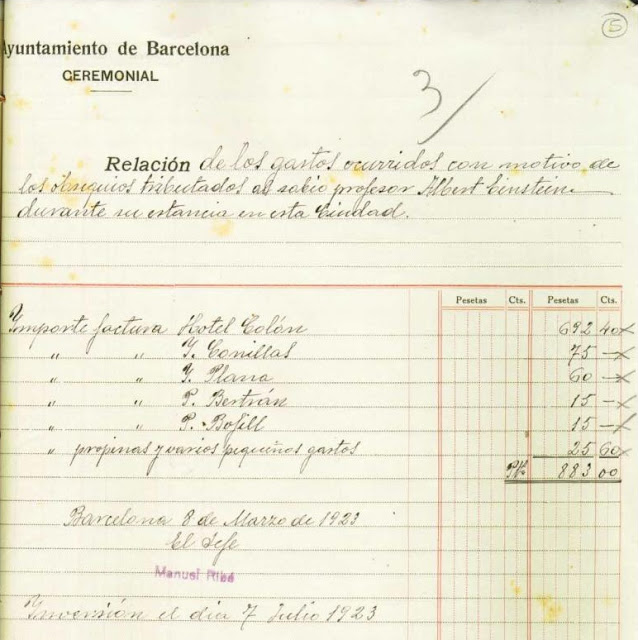 5
Ayuntamiento de Barcelona
CEREMONIAL
3/
Relación de los gastos ocurridos con motivo de
los obsequios tributados al sabio profesor Albert Einstein
durante su estancia en esta Ciudad.
Pesetas Cts. Pesetas Cts.
Importe factura Hotel Colón 692 40 x
" " Y. Conillas 75 — x
" " Y. Plana 60 — x
" " P. Bertrán 15 — x
" " P. Bofill 15 — x
" propinas y varios pequeños gastos 25 60 x
Pts. 883 00
Barcelona 8 de Marzo de 1923
El Jefe
Manuel Ribé
Inversión el día 7 Julio 1923